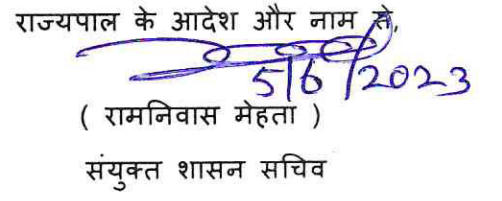 राज्यपाल के आदेश और नाम से,
5/6/2023
( रामनिवास मेहता )
संयुक्त शासन सचिव